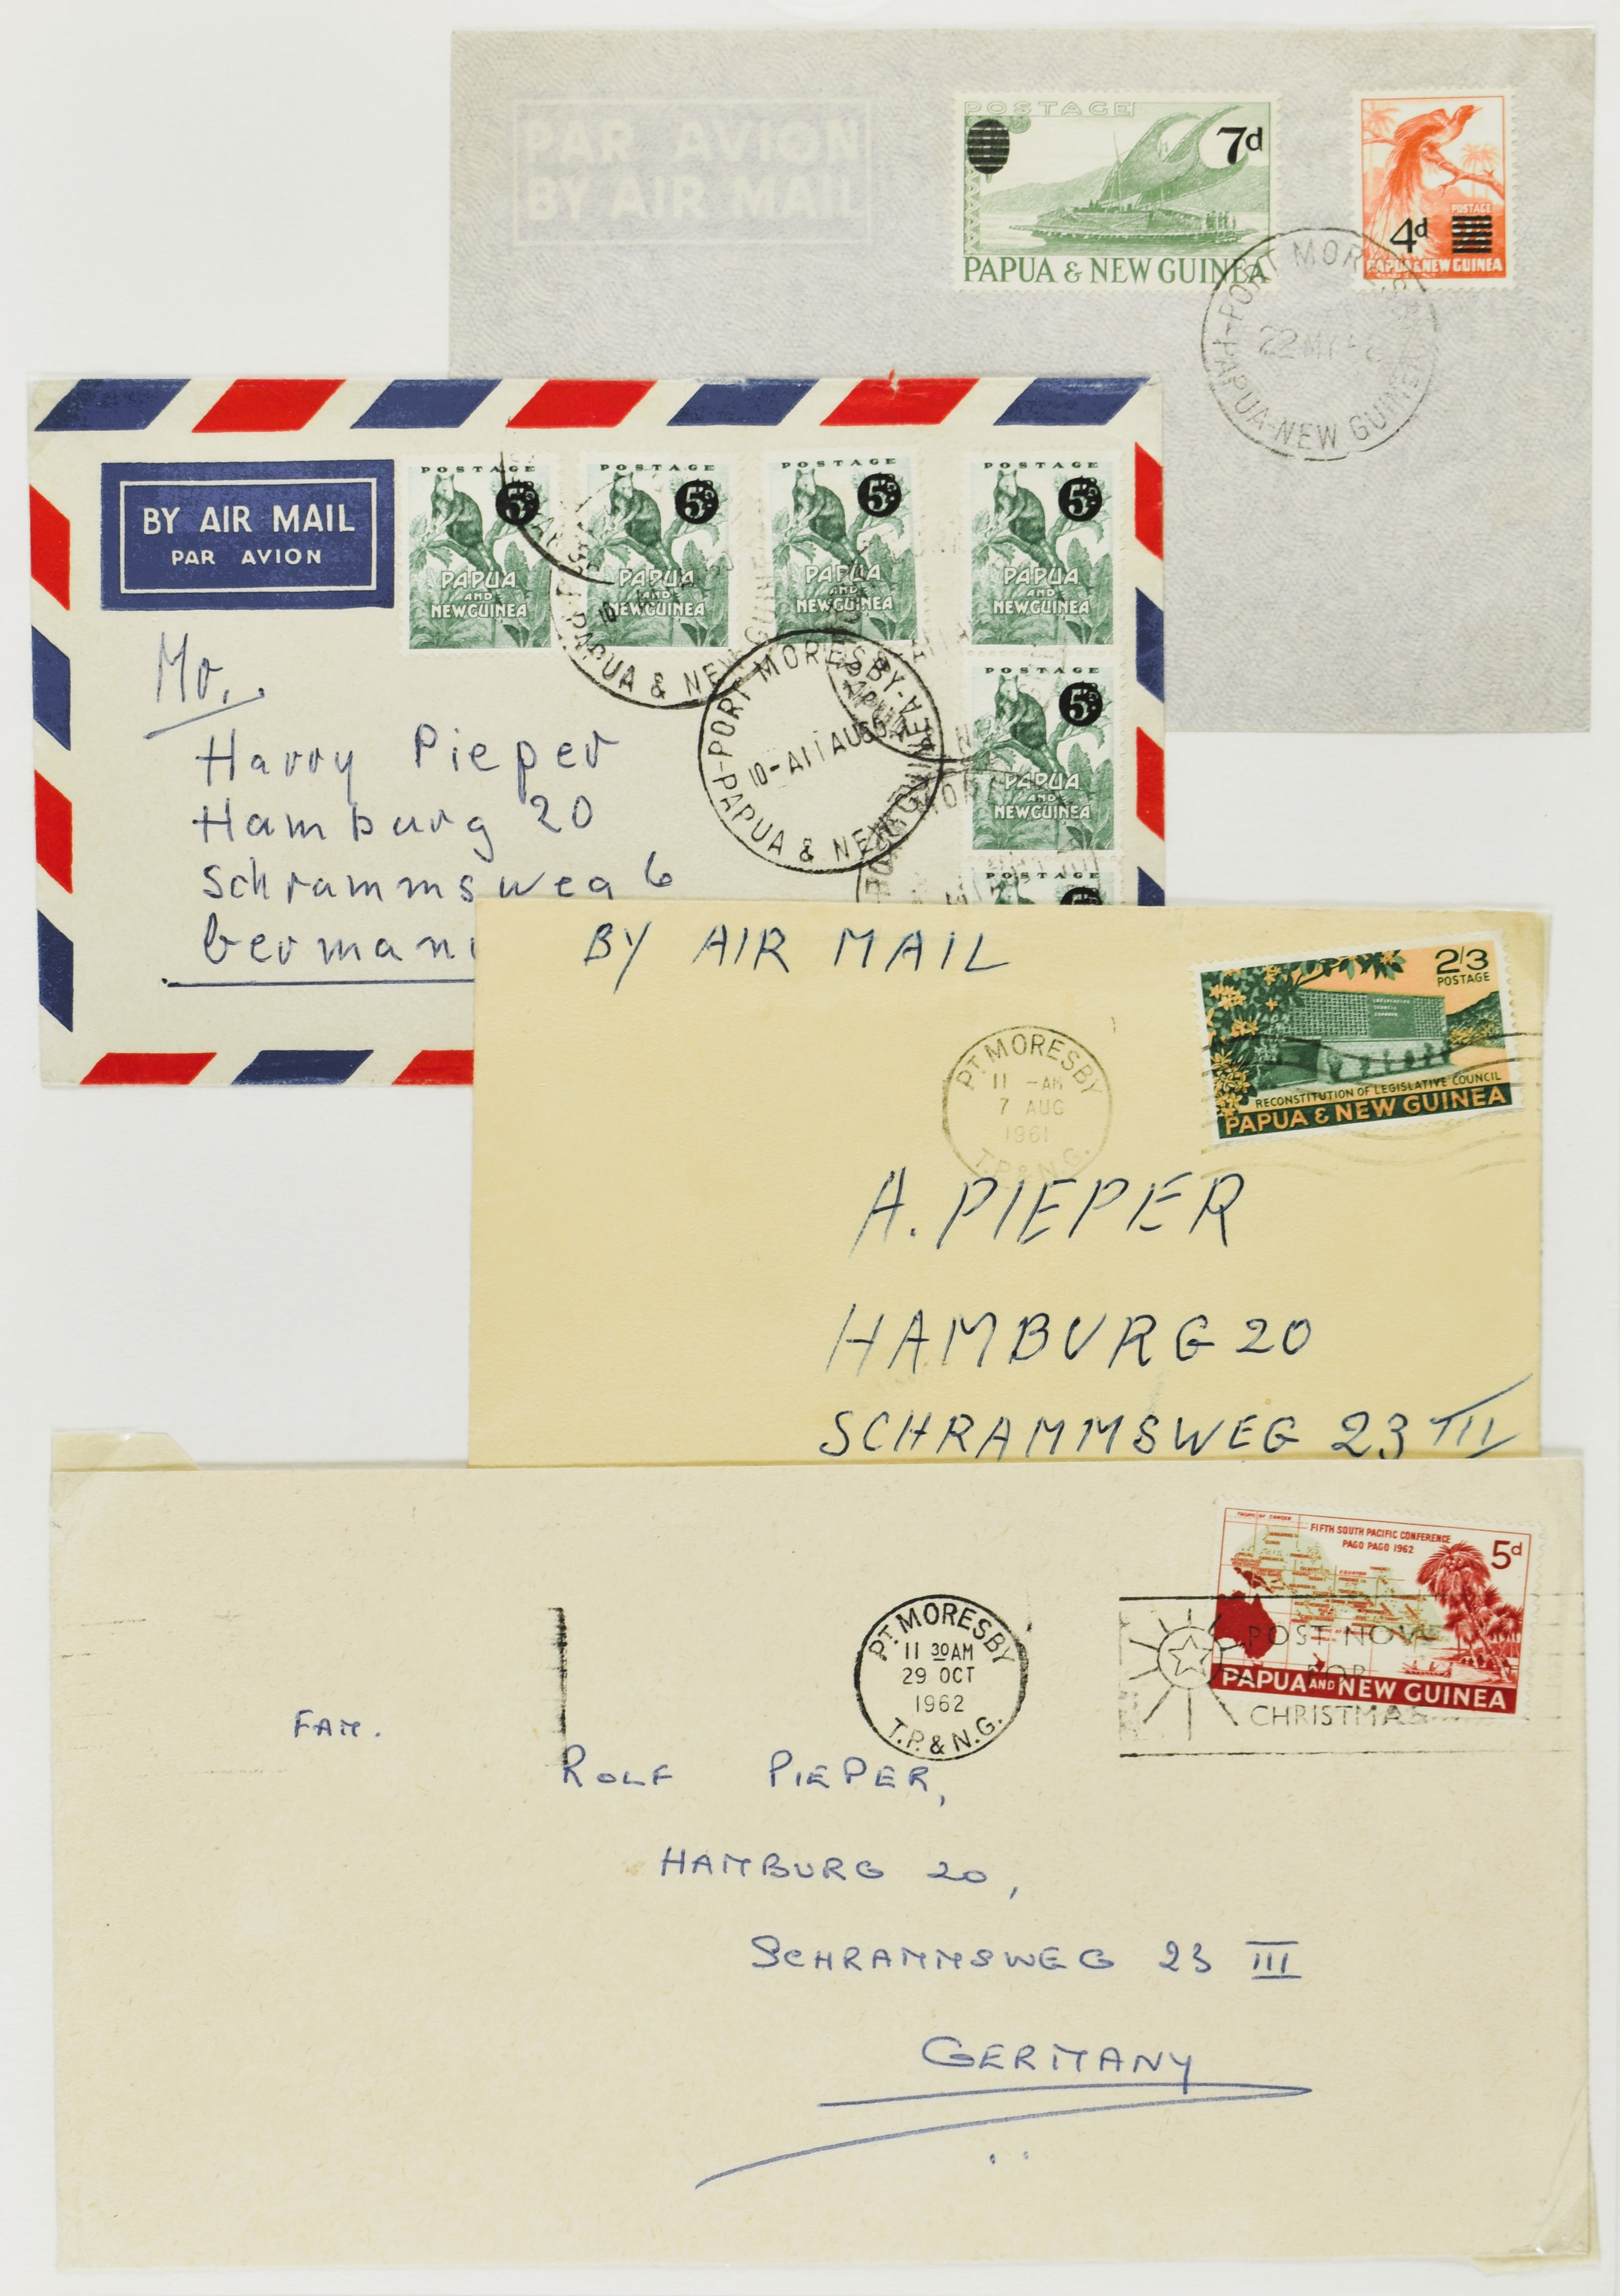 PAR AVION
BY AIR MAIL
POSTAGE
7d
PAPUA & NEW GUINEA
POSTAGE
4d
PAPUA & NEW GUINEA
PORT MORESBY
22 MY
PAPUA-NEW GUINEA
BY AIR MAIL
PAR AVION
POSTAGE
5d
PAPUA
AND
NEW GUINEA
POSTAGE
5d
PAPUA
AND
NEW GUINEA
POSTAGE
5d
PAPUA
AND
NEW GUINEA
POSTAGE
5d
PAPUA
AND
NEW GUINEA
POSTAGE
5d
PAPUA
AND
NEW GUINEA
POSTAGE
PAPUA & NEW GUINEA
PORT MORESBY
10-A11AU
PAPUA & NEW GUINEA
Mr.
Harry Pieper
Hamburg 20
Schrammsweg 6
German
BY AIR MAIL
2/3
POSTAGE
LEGISLATIVE
COUNCIL
CHAMBER
RECONSTITUTION OF LEGISLATIVE COUNCIL
PAPUA & NEW GUINEA
PT. MORESBY
11 -AM
7 AUG
1961
T.P. & N.G.
A. PIEPER
HAMBURG 20
SCHRAMMSWEG 23 III
TROPIC OF CANCER
FIFTH SOUTH PACIFIC CONFERENCE
PAGO PAGO 1962
5d
PAPUA AND NEW GUINEA
PT. MORESBY
11 30AM
29 OCT
1962
T.P. & N.G.
POST NOW
FOR
CHRISTMAS
FAM.
ROLF PIEPER,
HAMBURG 20,
SCHRAMMSWEG 23 III
GERMANY